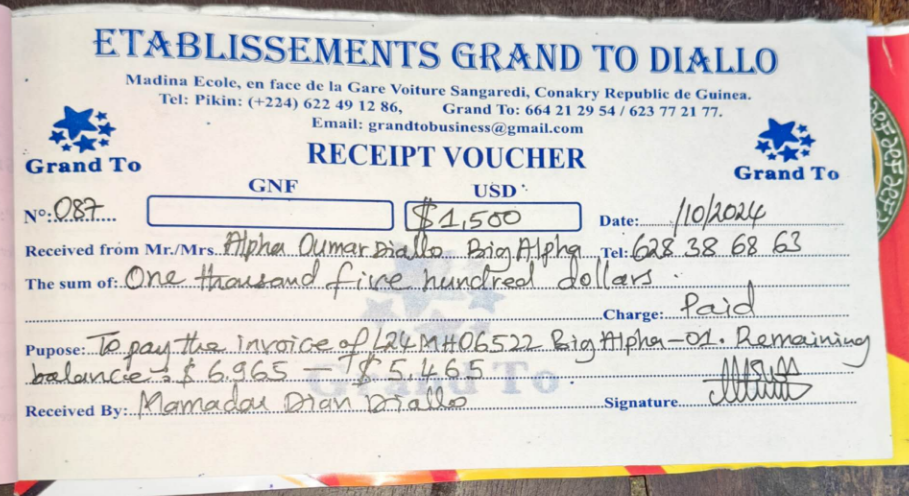 ETABLISSEMENTS GRAND TO DIALLO
Madina Ecole, en face de la Gare Voiture Sangaredi, Conakry Republic de Guinea.
Tel: Pikin: (+224) 622 49 12 86, Grand To: 664 21 29 54 / 623 77 21 77.
Email: grandtobusiness@gmail.com
Grand To
RECEIPT VOUCHER
Grand To
GNF USD
N°: 087 $1,500 Date: /10/2024
Received from Mr./Mrs. Alpha Oumar Diallo Big Alpha Tel: 628 38 68 63
The sum of: One thousand five hundred dollars.
Charge: Paid
Pupose: To pay the invoice of L24MH06522 Big Alpha-01. Remaining
balance: $ 6,965 - $ 5,465
Grand To
Received By: Mamadou Dian Diallo Signature